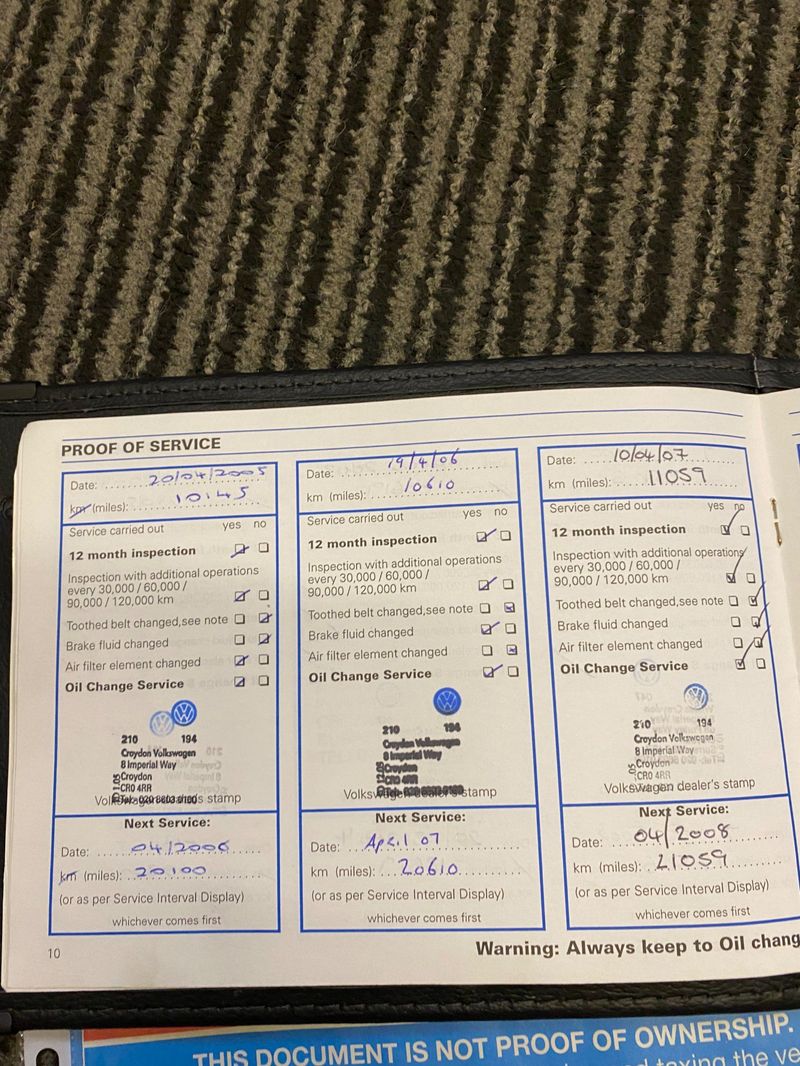 PROOF OF SERVICE
Date: 20/04/2005
km (miles): 10145
Service carried out yes no
12 month inspection
Inspection with additional operations
every 30,000 / 60,000 /
90,000 / 120,000 km
Toothed belt changed, see note
Brake fluid changed
Air filter element changed
Oil Change Service
210 194
Croydon Volkswagen
8 Imperial Way
Croydon
CR0 4RR
Tel: 020 8603 0100
stamp
Next Service:
Date: 04/2006
km (miles): 20100
(or as per Service Interval Display)
whichever comes first
Date: 19/4/06
km (miles): 10610
Service carried out yes no
12 month inspection
Inspection with additional operations
every 30,000 / 60,000 /
90,000 / 120,000 km
Toothed belt changed, see note
Brake fluid changed
Air filter element changed
Oil Change Service
210 194
Croydon Volkswagen
8 Imperial Way
Croydon
CR0 4RR
Volkswagen dealer's stamp
Next Service:
Date: April 07
km (miles): 20610
(or as per Service Interval Display)
whichever comes first
Date: 10/04/07
km (miles): 11059
Service carried out yes no
12 month inspection
Inspection with additional operations
every 30,000 / 60,000 /
90,000 / 120,000 km
Toothed belt changed, see note
Brake fluid changed
Air filter element changed
Oil Change Service
210 194
Croydon Volkswagen
8 Imperial Way
Croydon
CR0 4RR
Volkswagen dealer's stamp
Next Service:
Date: 04/2008
km (miles): 21059
(or as per Service Interval Display)
whichever comes first
10
Warning: Always keep to Oil chang
THIS DOCUMENT IS NOT PROOF OF OWNERSHIP.
taxing the ve